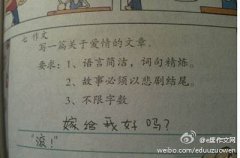 七 作文
写一篇关于爱情的文章。
要求：1、语言简洁，词句精炼。
2、故事必须以悲剧结尾。
3、不限字数
嫁给我好吗？
"滚！"
@e度作文网
weibo.com/eduuzuowen